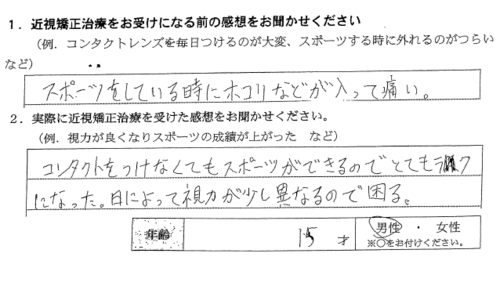 1．近視矯正治療をお受けになる前の感想をお聞かせください
（例．コンタクトレンズを毎日つけるのが大変、スポーツする時に外れるのがつらい
など）
スポーツをしている時にホコリなどが入って痛い。
2．実際に近視矯正治療を受けた感想をお聞かせください。
（例．視力が良くなりスポーツの成績が上がった　など）
コンタクトをつけなくてもスポーツができるのでとてもラク
になった。日によって視力が少し異なるので困る。
年齢　15　才　男性　・　女性
※○をお付けください。